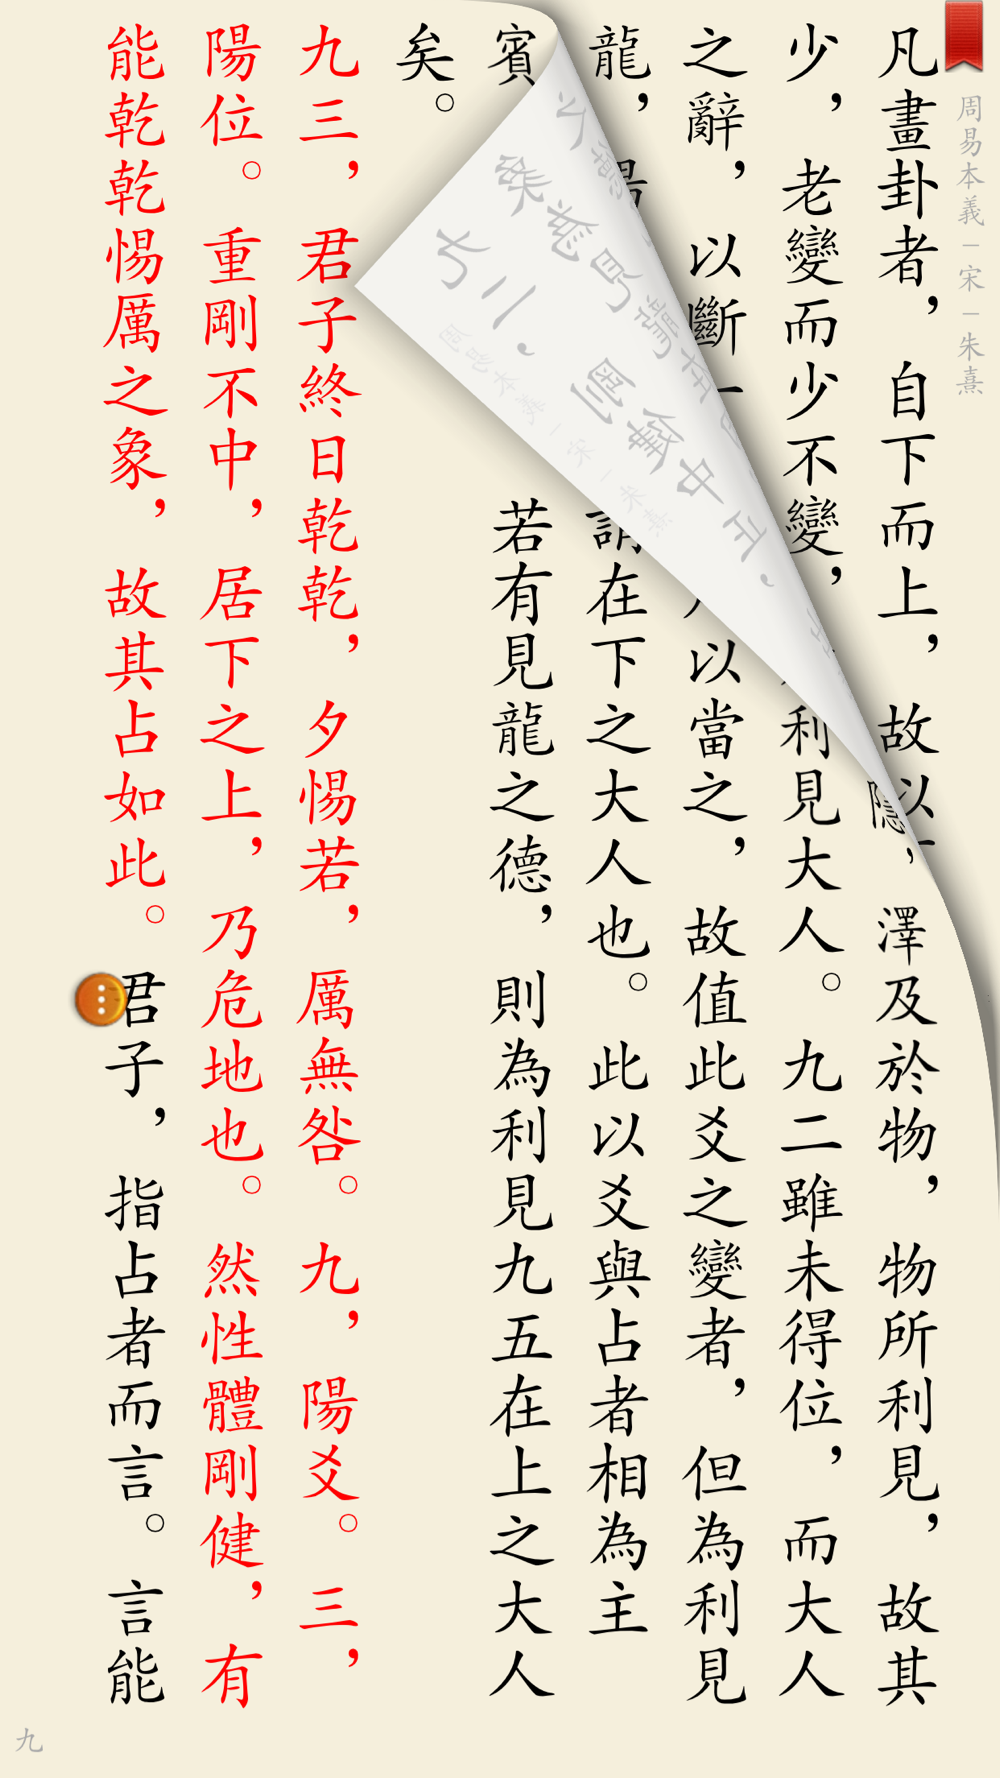 周易本義－宋－朱熹
凡畫卦者，自下而上，故以
隱，澤及於物，物所利見，故其
少，老變而少不變，
利見大人。九二雖未得位，而大人
之辭，以斷
以當之，故值此爻之變者，但為利見
龍，
在下之大人也。此以爻與占者相為主
賓
若有見龍之德，則為利見九五在上之大人
矣。
九三，君子終日乾乾，夕惕若，厲無咎。九，陽爻。三，
陽位。重剛不中，居下之上，乃危地也。然性體剛健，有
能乾乾惕厲之象，故其占如此。君子，指占者而言。言能
九